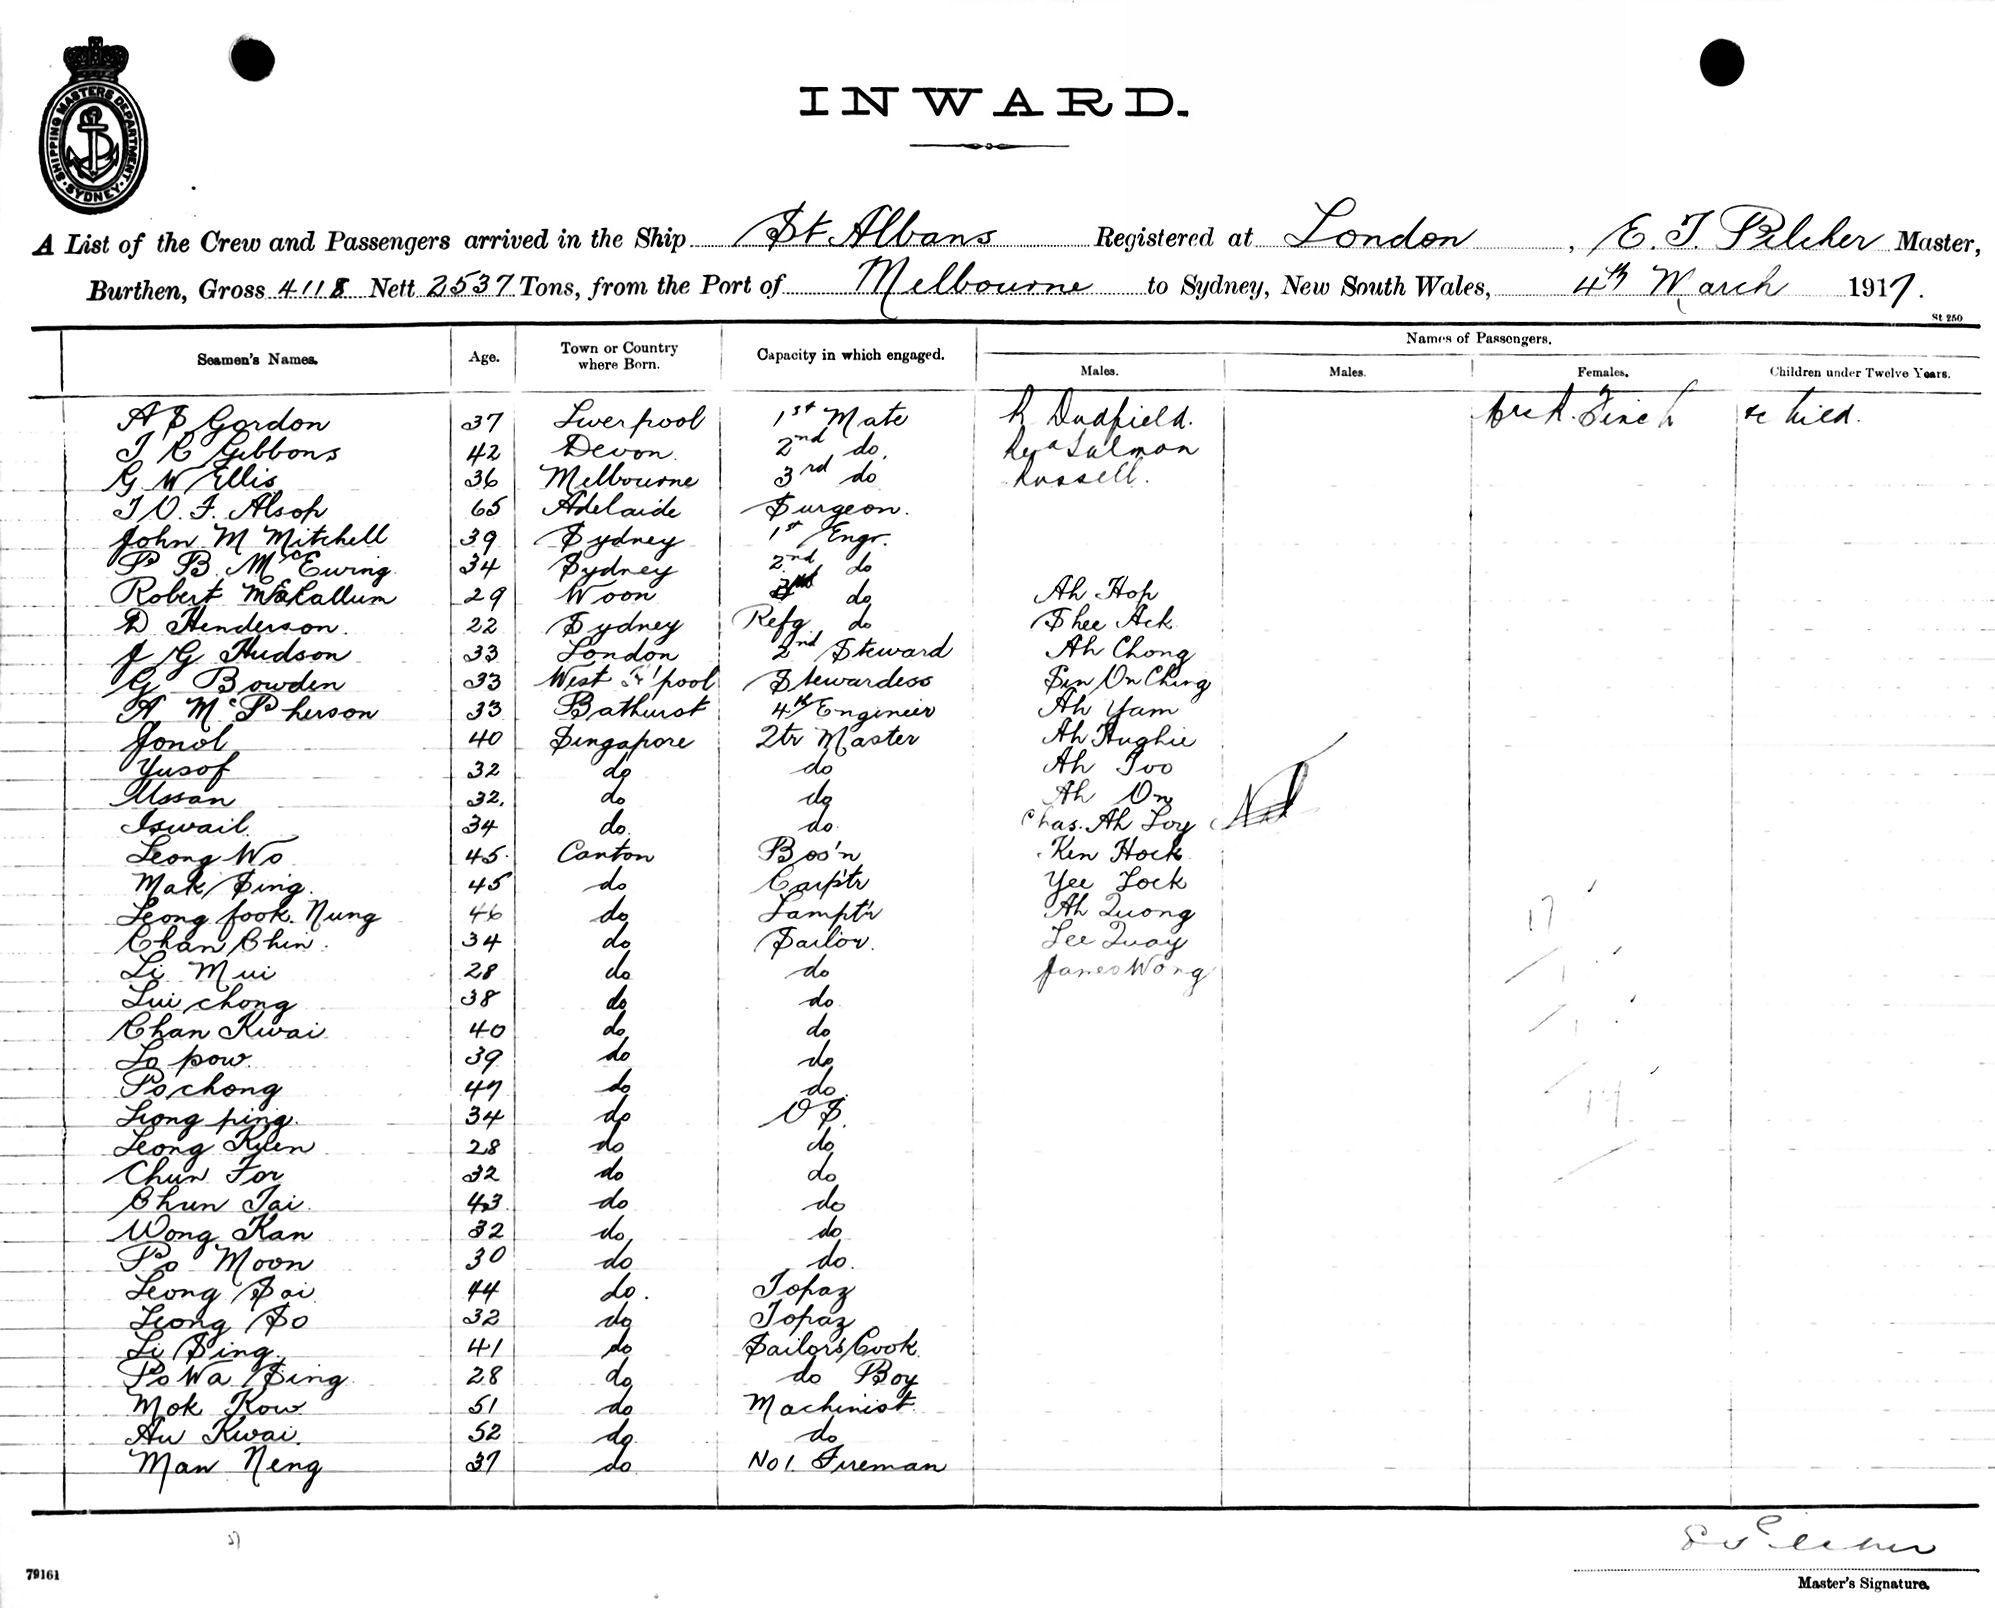 SHIPPING MASTERS DEPARTMENT. SYDNEY
INWARD.
A List of the Crew and Passengers arrived in the Ship St Albans Registered at London, E. T. Pilcher Master,
Burthen, Gross 4118 Nett 2537 Tons, from the Port of Melbourne to Sydney, New South Wales, 4th March 1917.
St 250
Seamen's Names. Age. Town or Country where Born. Capacity in which engaged. Names of Passengers.
Males. Males. Females. Children under Twelve Years.
A S Gordon 37 Liverpool 1st Mate R Dudfield. Finch
T R Gibbons 42 Devon 2nd do. Salmon
G W Ellis 36 Melbourne 3rd do Russell.
T O. F. Alsop 65 Adelaide Surgeon.
John M Mitchell 39 Sydney 1st Engr.
P B McEwing 34 Sydney 2nd do
Robert McCallum 29 Woon do Ah Hop
D Henderson. 22 Sydney Refg do Shee Ack
J G Hudson 33 London 2nd Steward Ah Chong
G Bowden 33 West H'pool Stewardess Sin On Ching
A McPherson 33 Bathurst 4th Engineer Ah Yam
Jonol 40 Singapore Qtr Master Ah Hughie
Yusof 32 do do Ah Too
Ussan 32. do do Ah On
Iswail 34 do do Chas. Ah Loy
Leong Wo 45. Canton Bos'n Ken Hock
Mak Sing. 45 do Carp'tr Yee Lock
Leong fook Nung 46 do Lampt'r Ah Quong
Chan Chin. 34 do Sailor. Lee Quay
Li Mui 28 do do James Wong
Lui chong 38 do do
Chan Kwai 40 do do
Lo pow. 39 do do
Po chong 47 do do.
Leong ping. 34 do O S.
Leong Kuen 28 do do
Chun For 32 do do
Chun Tai. 43 do do
Wong Kan 32 do do
Po Moon 30 do do.
Leong Sai 44 do. Topaz
Leong So 32 do Topaz
Li Sing. 41 do Sailors Cook
Po Wa Sing 28 do do Boy
Mok Kow 51 do Machinist
Au Kwai. 52 do do
Man Neng 37 do No 1. Fireman
79161
Master's Signature.